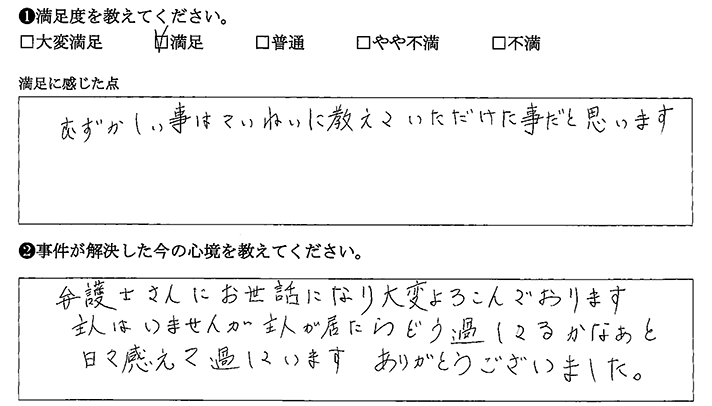 ❶満足度を教えてください。
□大変満足 ☑満足 □普通 □やや不満 □不満
満足に感じた点
むずかしい事はていねいに教えていただけた事だと思います
❷事件が解決した今の心境を教えてください。
弁護士さんにお世話になり大変よろこんでおります
主人はいませんが主人が居たらどう過してるかなぁと
日々感えて過しています ありがとうございました。